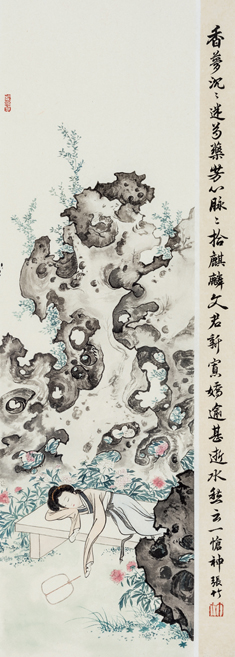 香夢沉々迷芍藥芳心脉々拾麒麟文君新寡嬌逾甚逝水愁云一愴神張竹